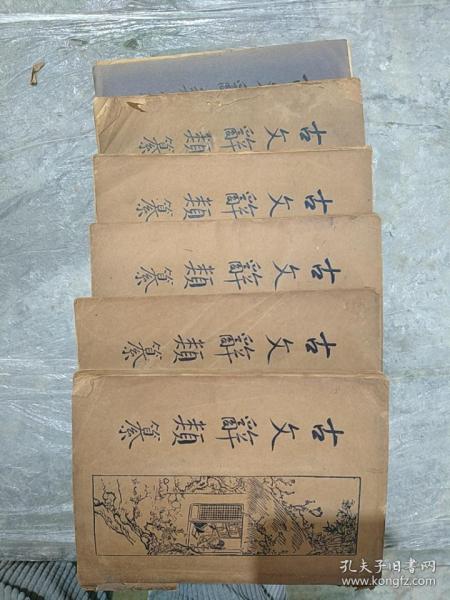 古文辭類纂
古文辭類纂
古文辭類纂
古文辭類纂
古文辭類纂
孔夫子旧书网
www.kongfz.com